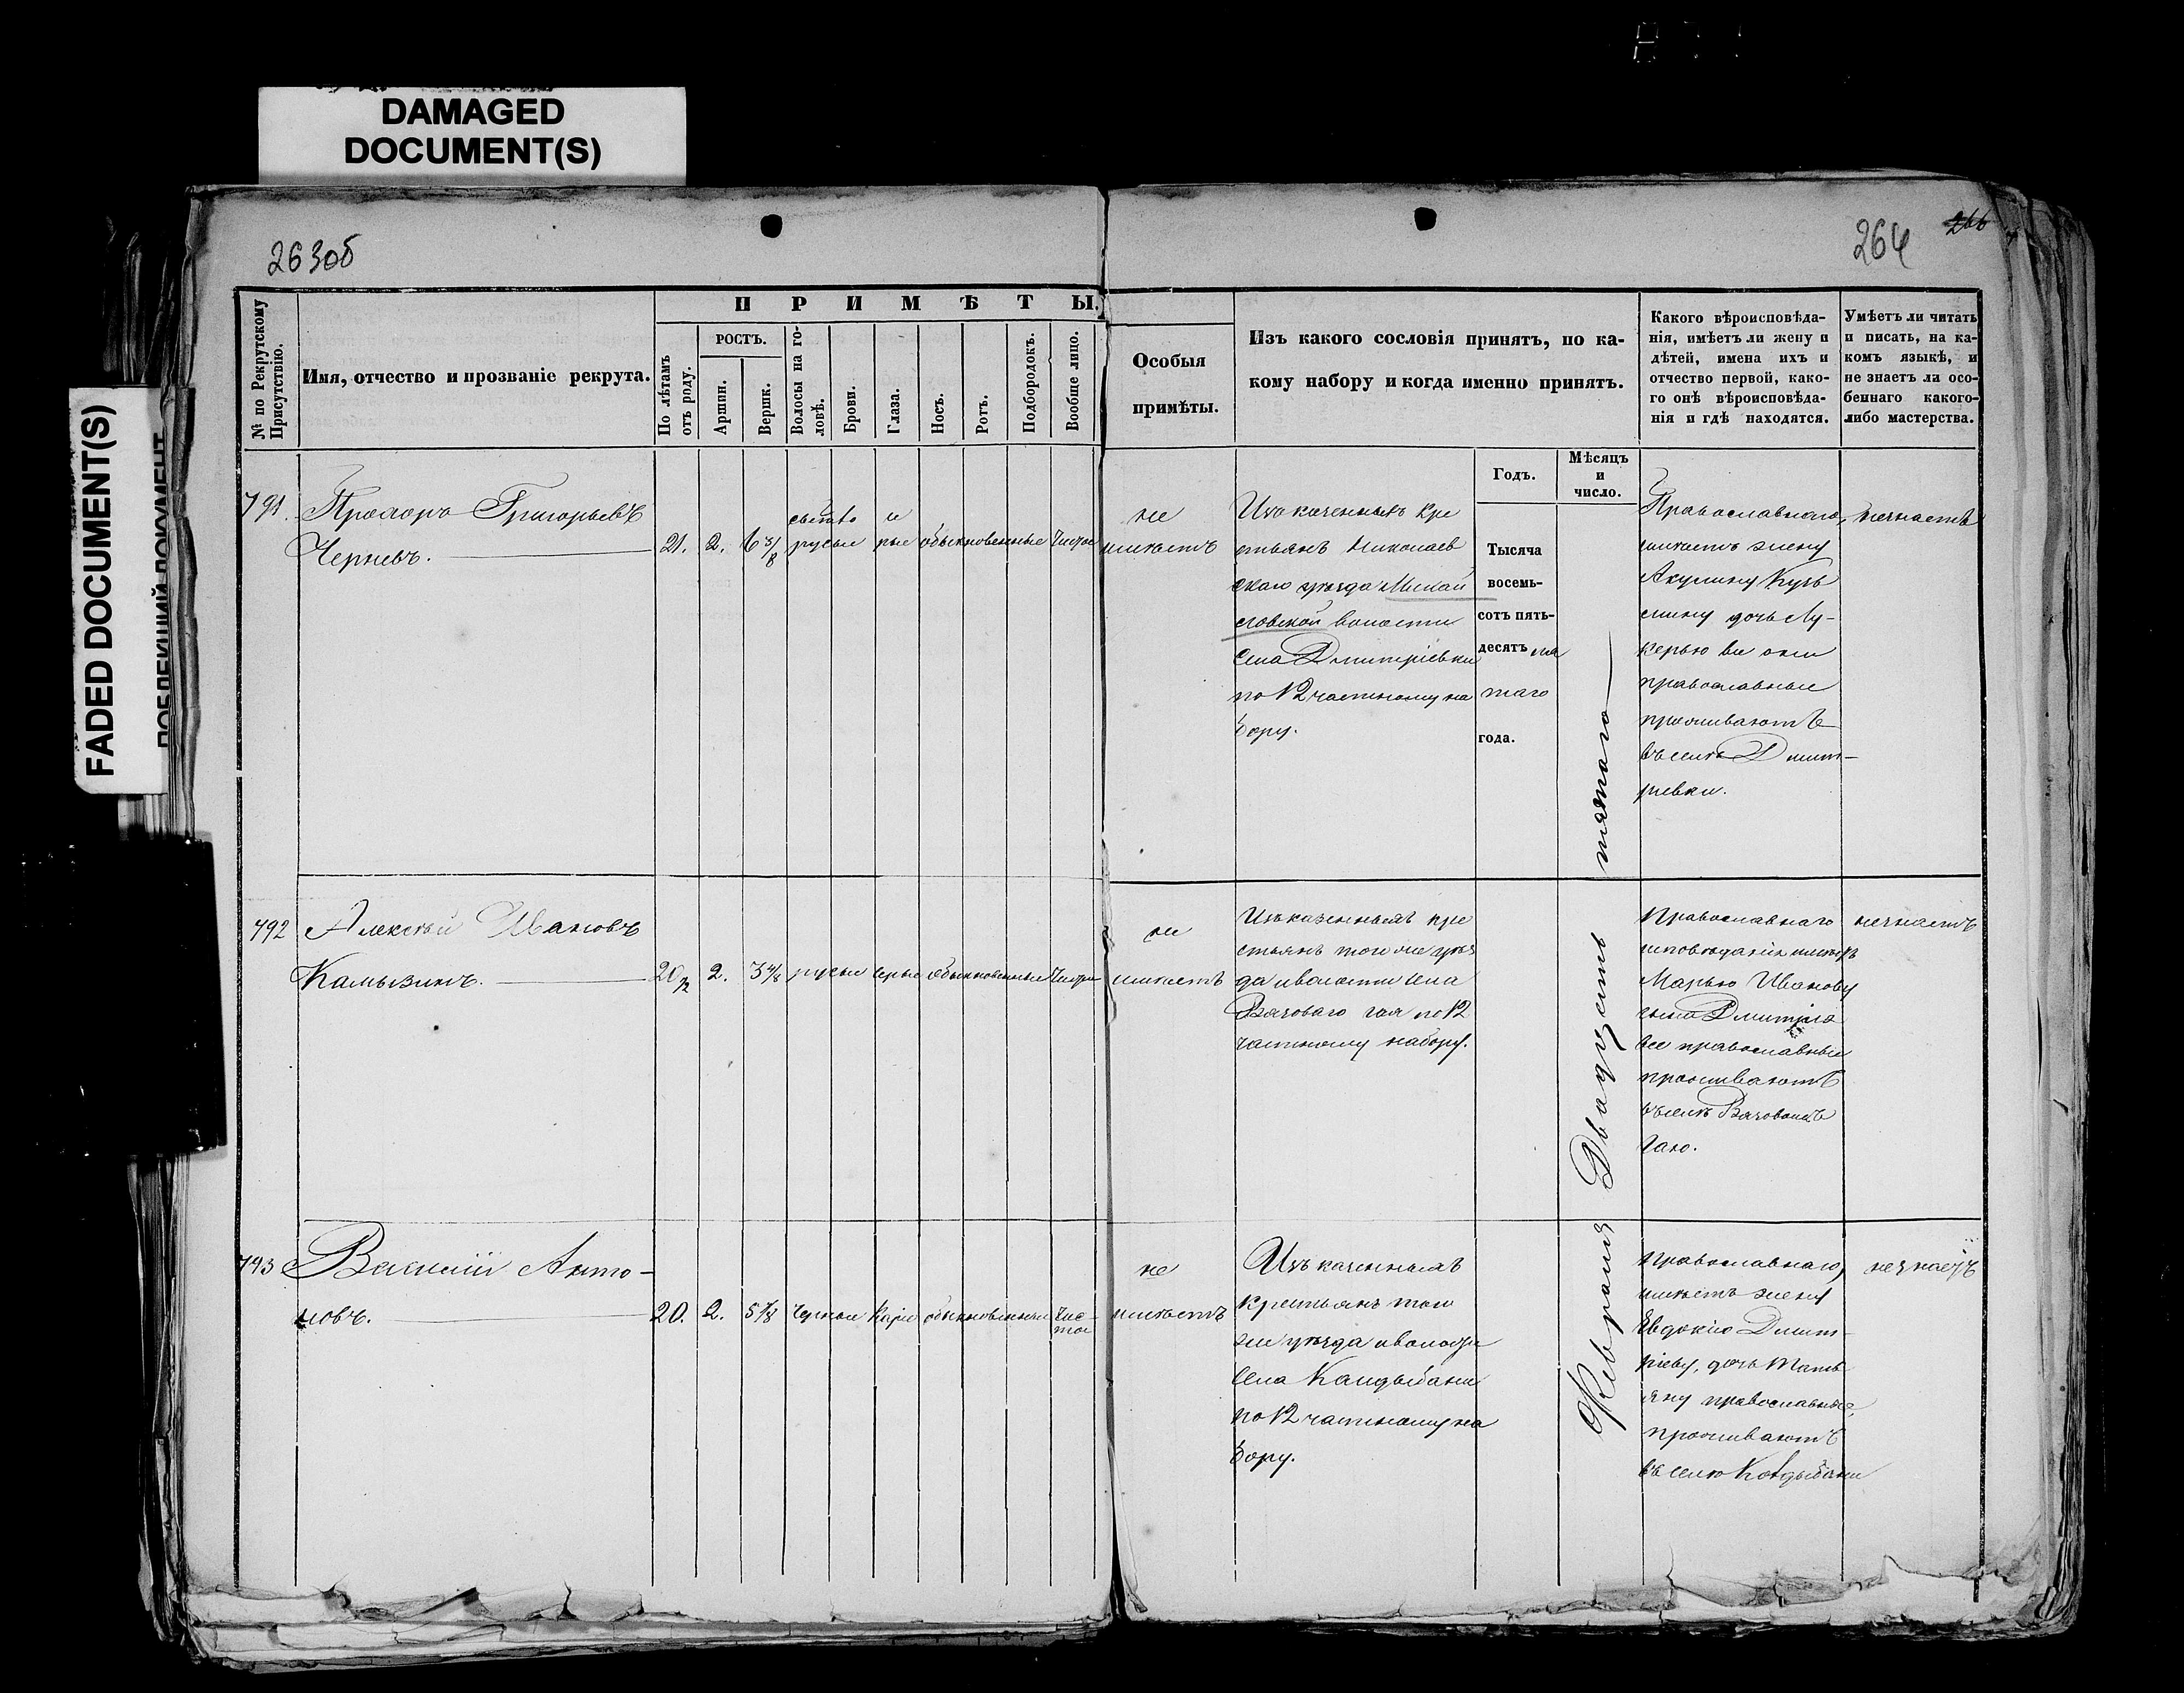 DAMAGED
DOCUMENT(S)
FADED DOCUMENT(S)
263об
264
266
№ по Рекрутскому
Присутствію.
Имя, отчество и прозваніе рекрута.
ПРИМѢТЫ.
По лѣтамъ
отъ роду.
РОСТЪ.
Аршин.
Вершк.
Волосы на го-
ловѣ.
Брови.
Глаза.
Носъ.
Ротъ.
Подбородокъ.
Вообще лицо.
Особыя
примѣты.
Изъ какого сословія принятъ, по ка-
кому набору и когда именно принятъ.
Какого вѣроисповѣда-
нія, имѣетъ ли жену и
дѣтей, имена ихъ и
отчество первой, како-
го онѣ вѣроисповѣда-
нія и гдѣ находятся.
Умѣетъ ли читать
и писать, на ка-
комъ языкѣ, и
не знаетъ ли осо-
беннаго какого-
либо мастерства.
Годъ.
Мѣсяцъ
и
число.
791.
Прохоръ Григорьевъ
Черневъ.
21.
2.
6 3/8
свѣтло
русые
се
рые
обыкновенные
Чистое
не
имѣетъ
Изъ казенныхъ кре
стьянъ Николаев
скаго уѣзда Михай
ловской волости
села Дмитріевки
по 12 частному на
бору.
Тысяча
восемь-
сотъ пять-
десятъ пя
таго
года.
Февраля Двадцать пятаго
Православнаго,
имѣетъ жену
Акулину Кузь
мину дочь Лу-
керью всѣ они
православные
проживаютъ
въ селѣ Дмит-
ріевки.
незнаетъ
792
Алексѣй Ивановъ
Камызинъ.
20 1/2
2.
3 4/8
русые
серые
обыкновенные
Чистое
не
имѣетъ
Изъ казенныхъ кре
стьянъ того же уѣз
да и волости села
Вязоваго гая по 12
частному набору.
Православнаго
исповѣданія имѣетъ
Марью Иванову
сына Дмитрія
все православные
проживаютъ
въ селѣ Вязовомъ
Гаю.
незнаетъ
793
Василій Анто-
новъ.
20.
2.
5 7/8
черные
Каріе
обыкновенные
Чис-
тое
не
имѣетъ
Изъ казенныхъ
крестьянъ того
же уѣзда и волости
села Кандыбани
по 12 частному на
бору.
Православнаго,
имѣетъ жену
Евдокію Дмит-
ріеву, дочь Тать
яну православные,
проживаютъ
въ селѣ Кандыбани
незнаетъ